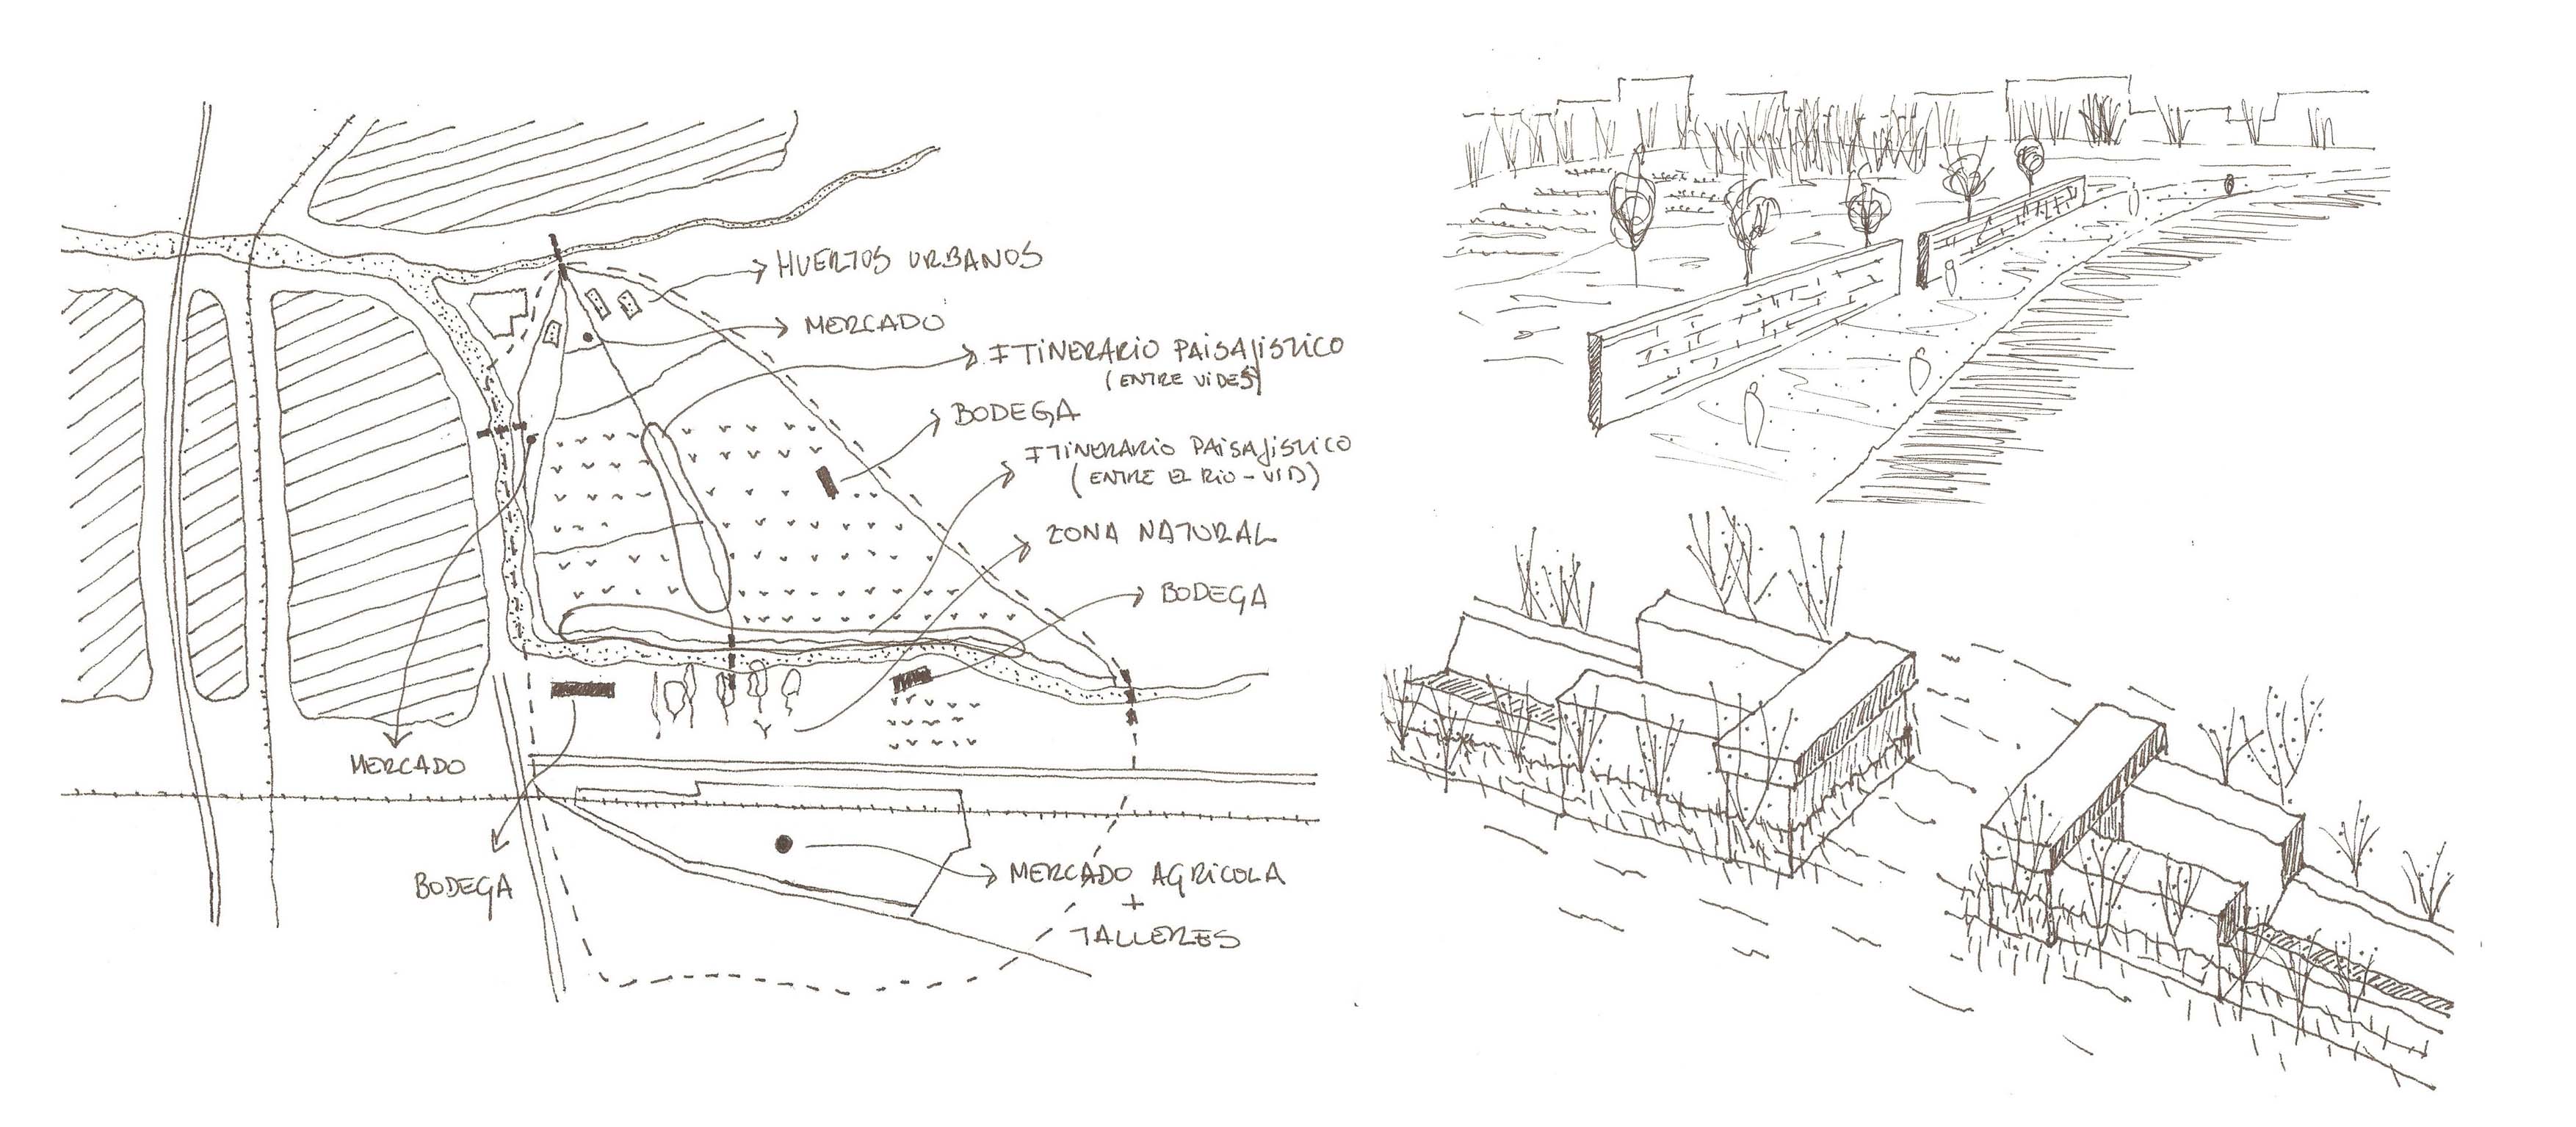 HUERTOS URBANOS
MERCADO
ITINERARIO PAISAJISTICO
(ENTRE VIDES)
BODEGA
ITINERARIO PAISAJISTICO
(ENTRE EL RIO - VID)
ZONA NATURAL
BODEGA
MERCADO
BODEGA
MERCADO AGRICOLA
+
TALLERES